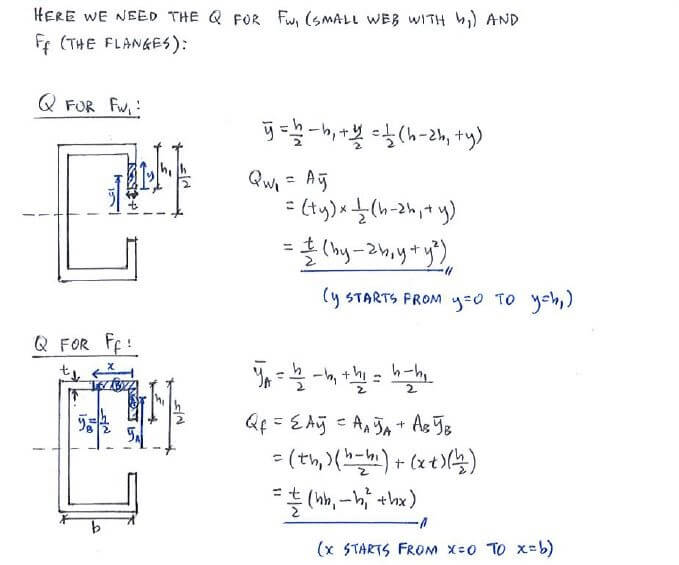 HERE WE NEED THE Q FOR Fw₁ (SMALL WEB WITH h₁) AND
Ff (THE FLANGES):
Q FOR Fw₁:
ȳ = h/2 - h₁ + y/2 = 1/2 (h-2h₁+y)
Qw₁ = Aȳ
= (ty) × 1/2 (h-2h₁+y)
= t/2 (hy-2h₁y+y²)
(y STARTS FROM y=0 TO y=h₁)
ȳ y h₁ h/2
t
Q FOR Ff:
t x
B
A
ȳB = h/2 ȳA h₁ h/2
b
ȳA = h/2 - h₁ + h₁/2 = h-h₁/2
Qf = ΣAȳ = AAȳA + ABȳB
= (th₁)(h-h₁/2) + (xt)(h/2)
= t/2 (hh₁-h₁²+hx)
(x STARTS FROM x=0 TO x=b)